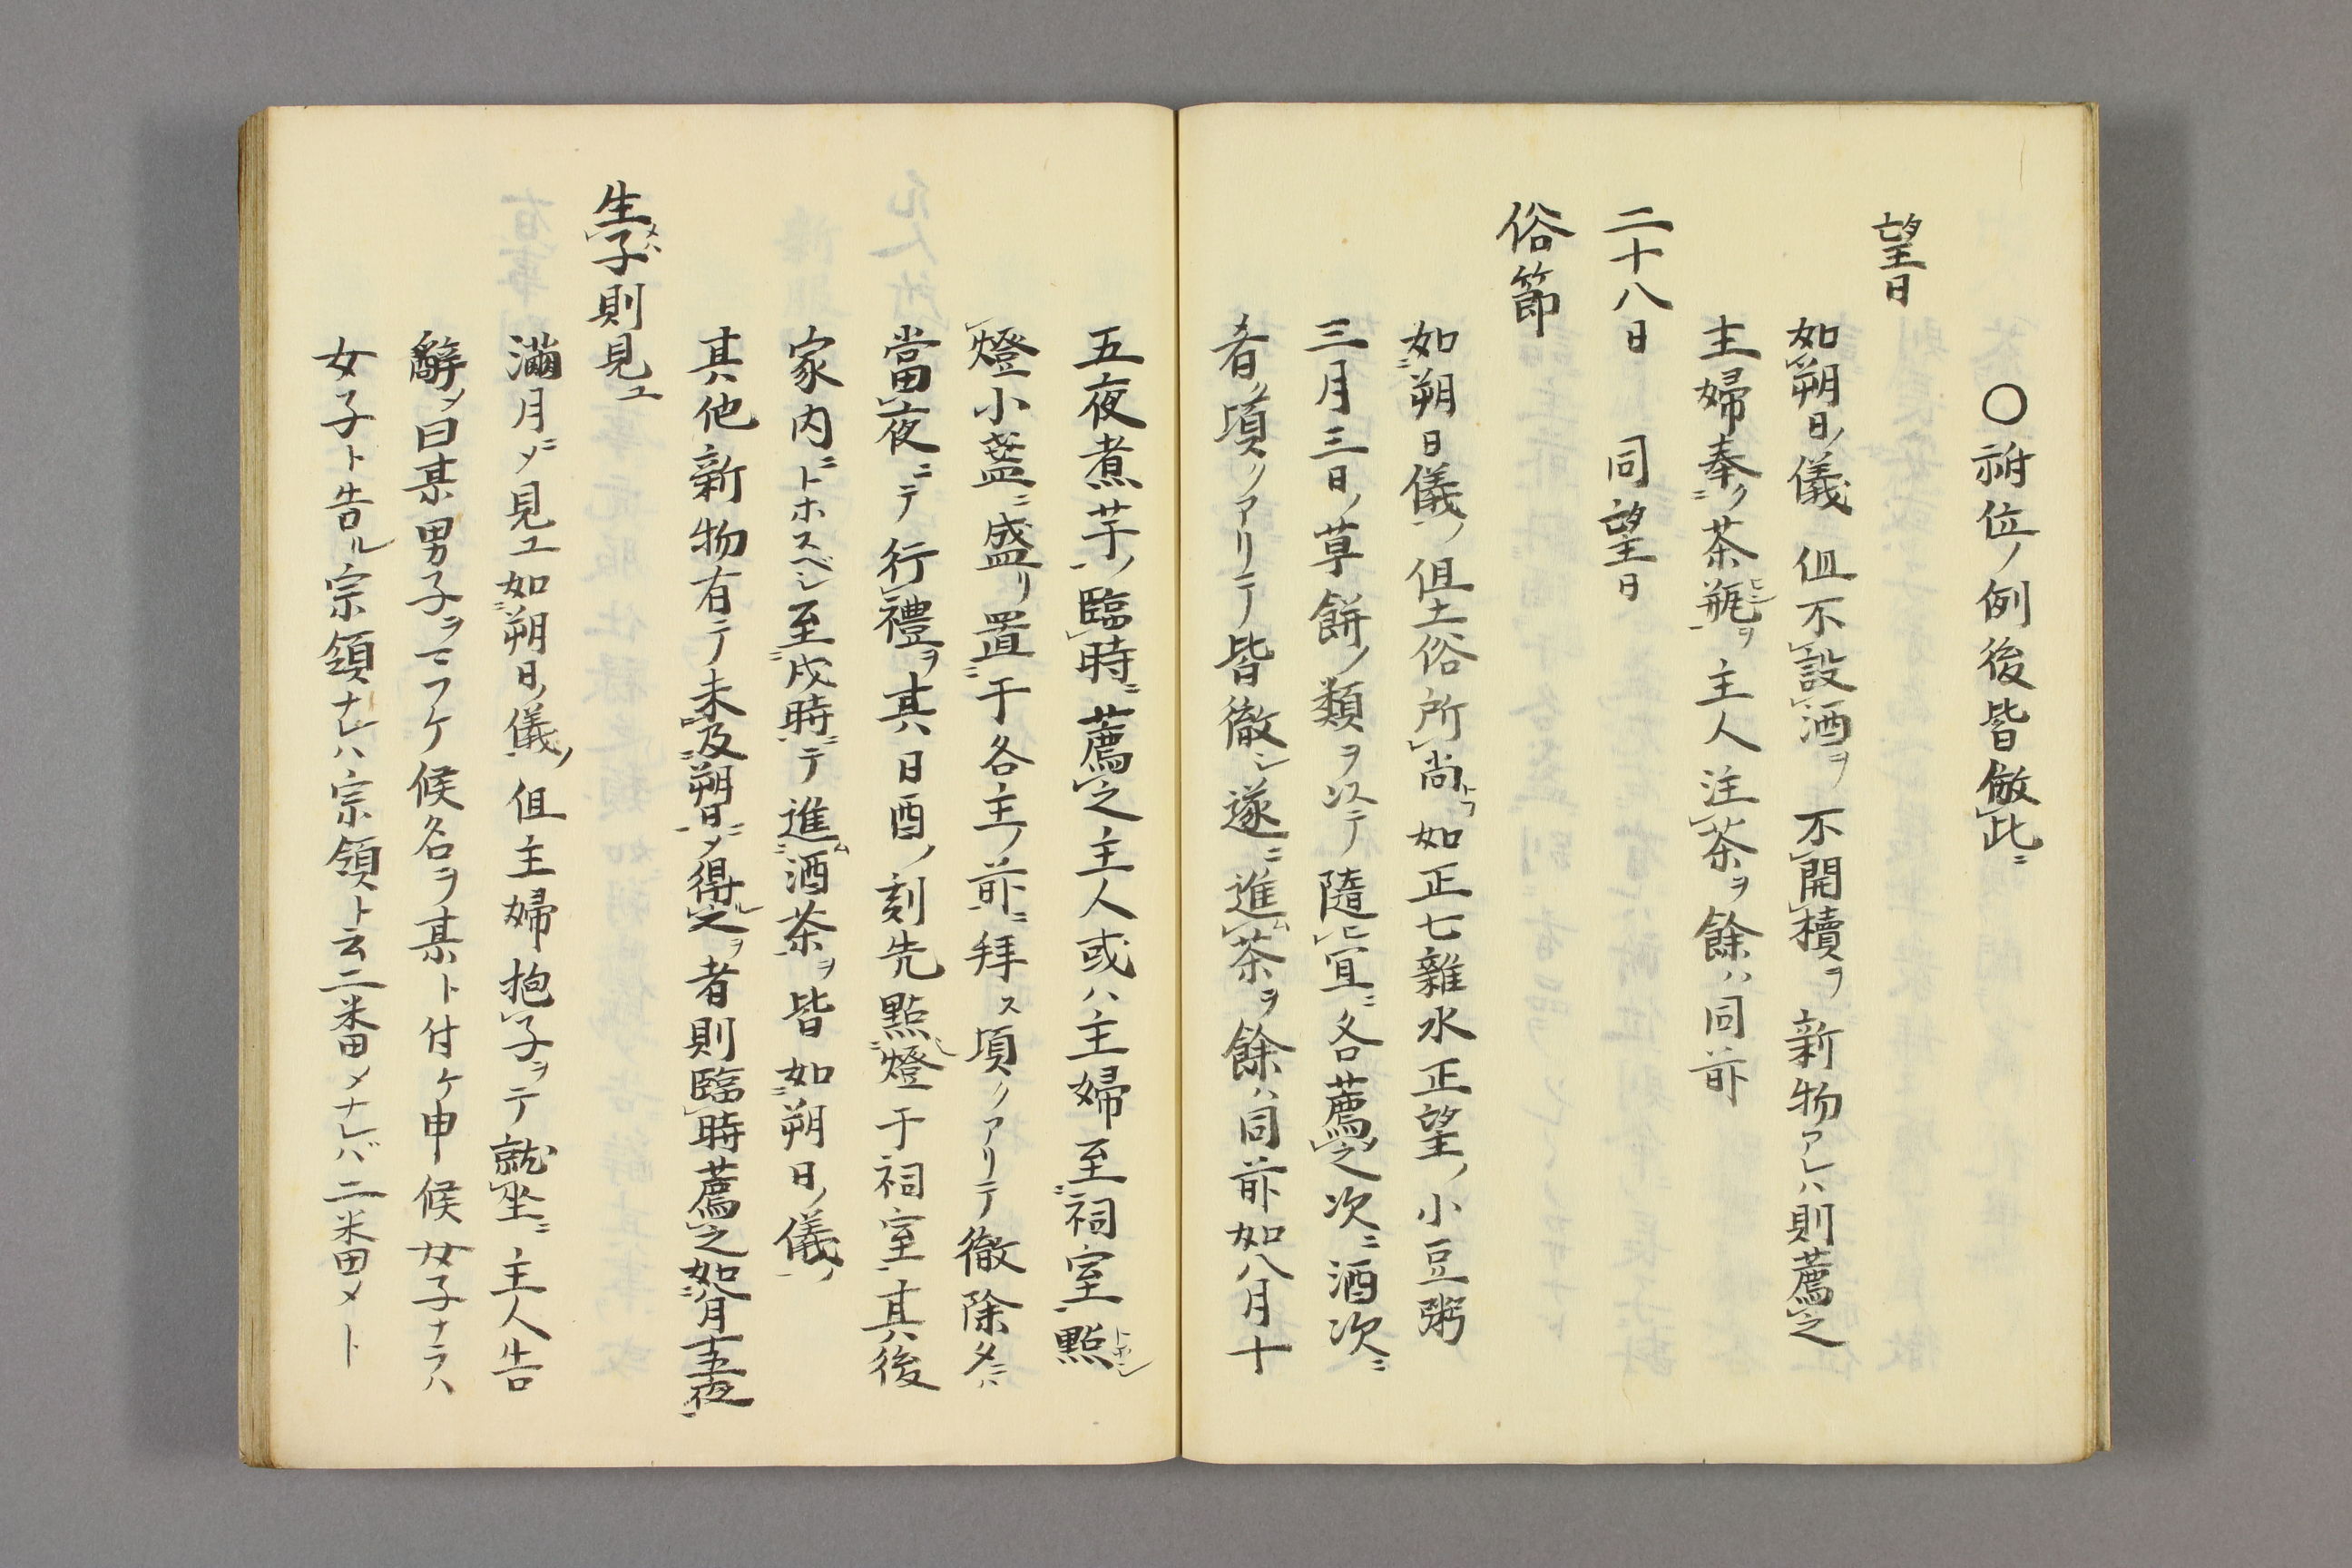 〇祔位ノ例後皆倣此ニ
望日
如朔日ノ儀但不設酒ヲ不開櫝ヲ新物アレハ則薦之
主婦奉ク茶瓶ヲ主人注茶ヲ餘ハ同前
二十八日　同望日
俗節
如朔日儀ノ但土俗所尚トフ如正七雜水正望ノ小豆粥
三月三日ノ草餅ノ類ヲ以テ隨宜ニ各薦之次ニ酒次ニ
肴ノ頃クアリテ皆徹シ遂ニ進ム茶ヲ餘ハ同前如八月十
五夜煮芋ノ臨時ニ薦之主人或ハ主婦至祠室點トホシ
燈小盞ニ盛リ置于各主ノ前ニ拜ス頃クアリテ徹除タニハ
當夜ニテ行禮ヲ其ハ日酉ノ刻先點燈于祠室其後
家内ニトホスベシ至戌時ニテ進ム酒茶ヲ皆如朔日ノ儀ノ
其ハ他新物有テ未及朔日ニメ得ル之ヲ者則臨時薦之如八月十五夜
生メハ子則見ユ
滿月ニメ見ユ如朔日ノ儀ノ但主婦抱子ヲテ就坐ニ主人告
辭メ曰某男子ヲマフケ候名ヲ某ト付ケ申候女子ナラハ
女子ト告ル宗領ナレハ宗領ト云二番メナレバ二番メト